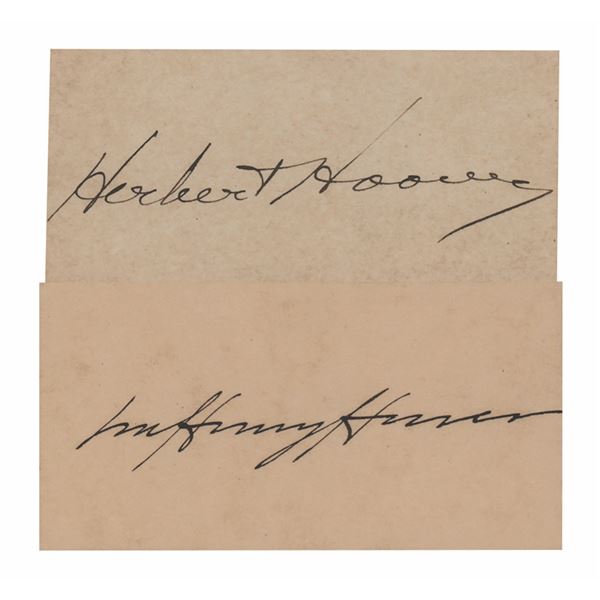 Herbert Hoover
Lou Henry Hoover